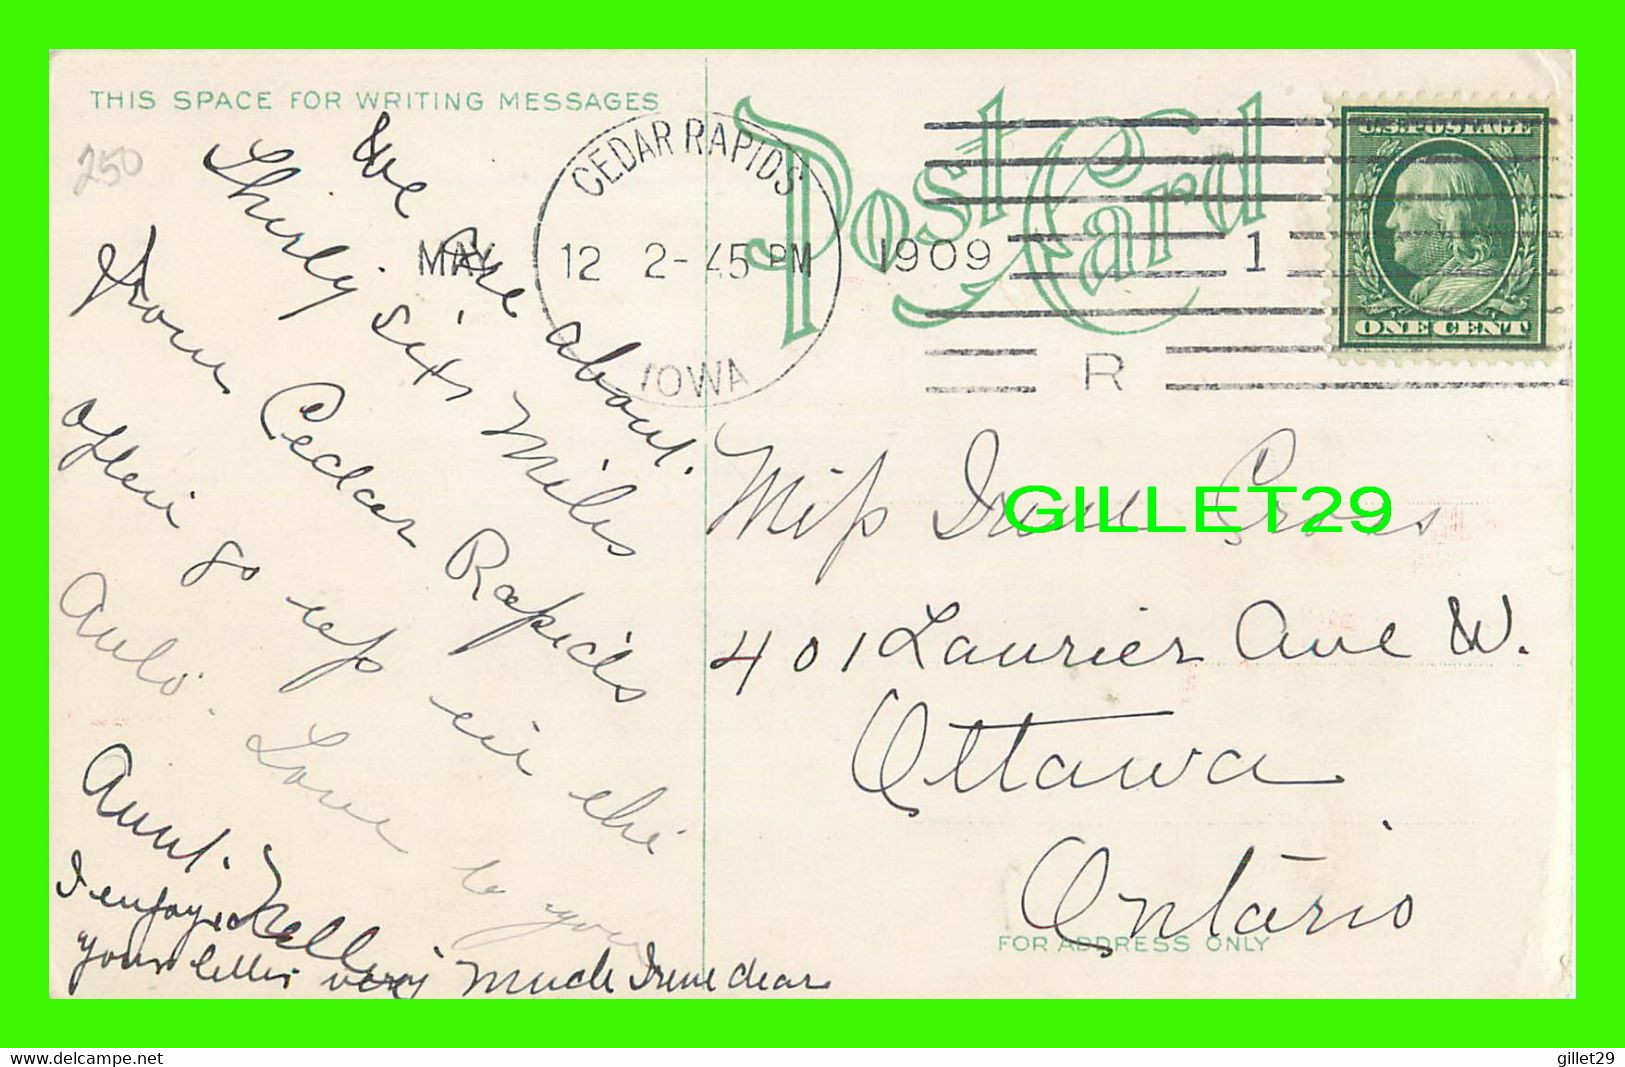 THIS SPACE FOR WRITING MESSAGES
Post Card
250
CEDAR RAPIDS
MAY 12 2-45 PM 1909
IOWA
1
R
U.S. POSTAGE
ONE CENT
We are about
Thirty six miles
from Cedar Rapids
often go up in the
Auto. Love to you
Aunt. Nelly
I enjoyed
your letter very much Irene dear
Miss Irene Cross
GILLET29
401 Laurier Ave W.
Ottawa
Ontario
FOR ADDRESS ONLY
www.delcampe.net
gillet29